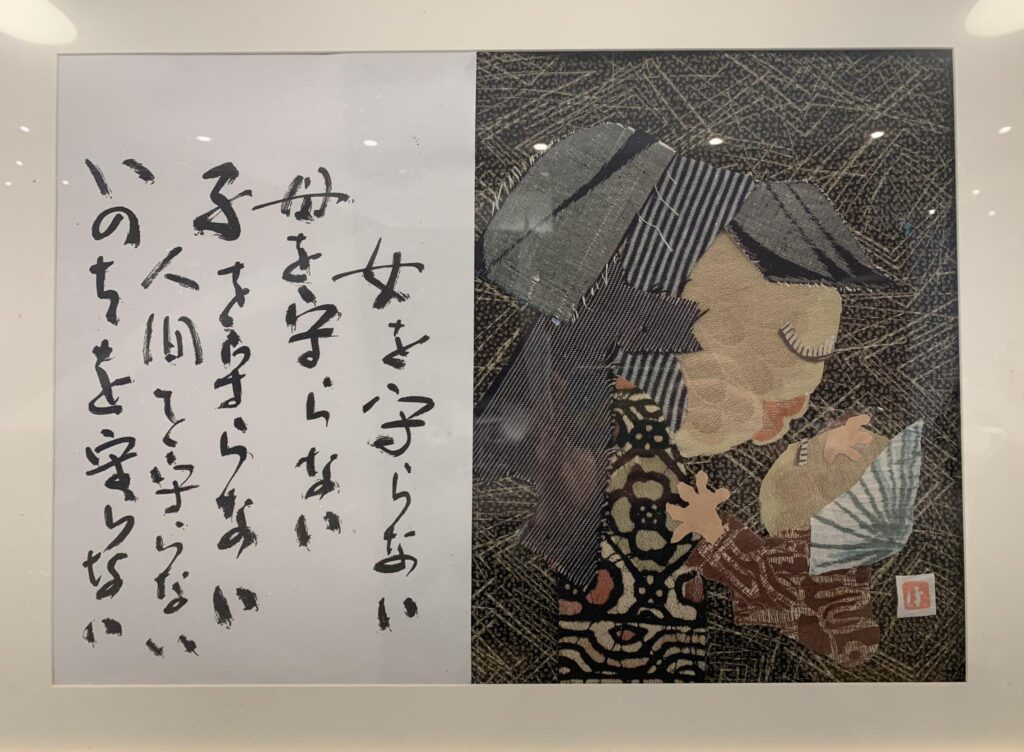 女を守らない
母を守らない
子を守らない
人間を守らない
いのちを守らない
け